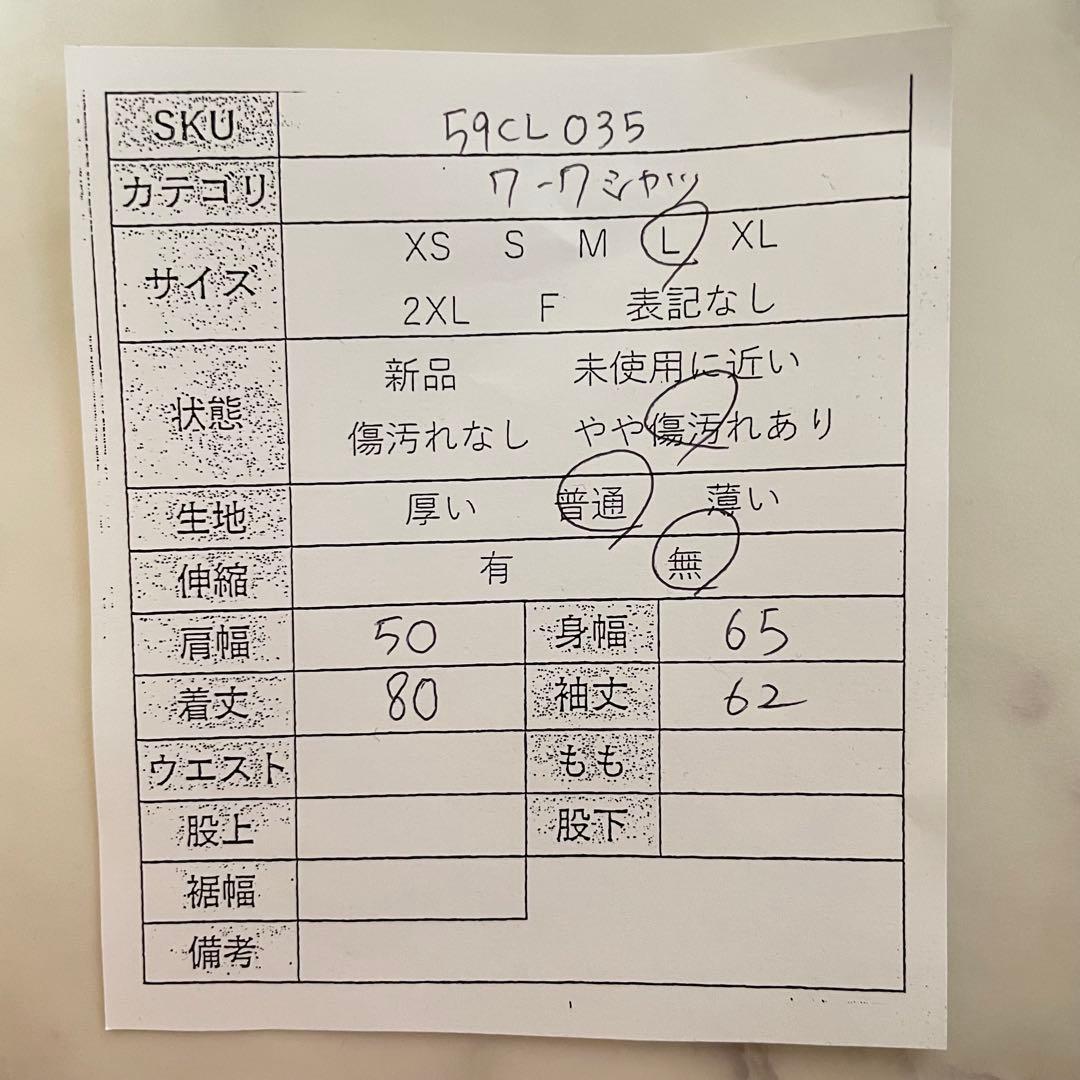 SKU 59CL035
カテゴリ ワークシャツ
サイズ XS S M L XL
2XL F 表記なし
状態 新品 未使用に近い
傷汚れなし やや傷汚れあり
生地 厚い 普通 薄い
伸縮 有 無
肩幅 50 身幅 65
着丈 80 袖丈 62
ウエスト もも
股上 股下
裾幅
備考